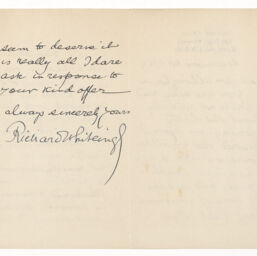 seem to deserve it
is really all I dare
ask in response to
your kind offer
always sincerely yours
Richard Whiteing